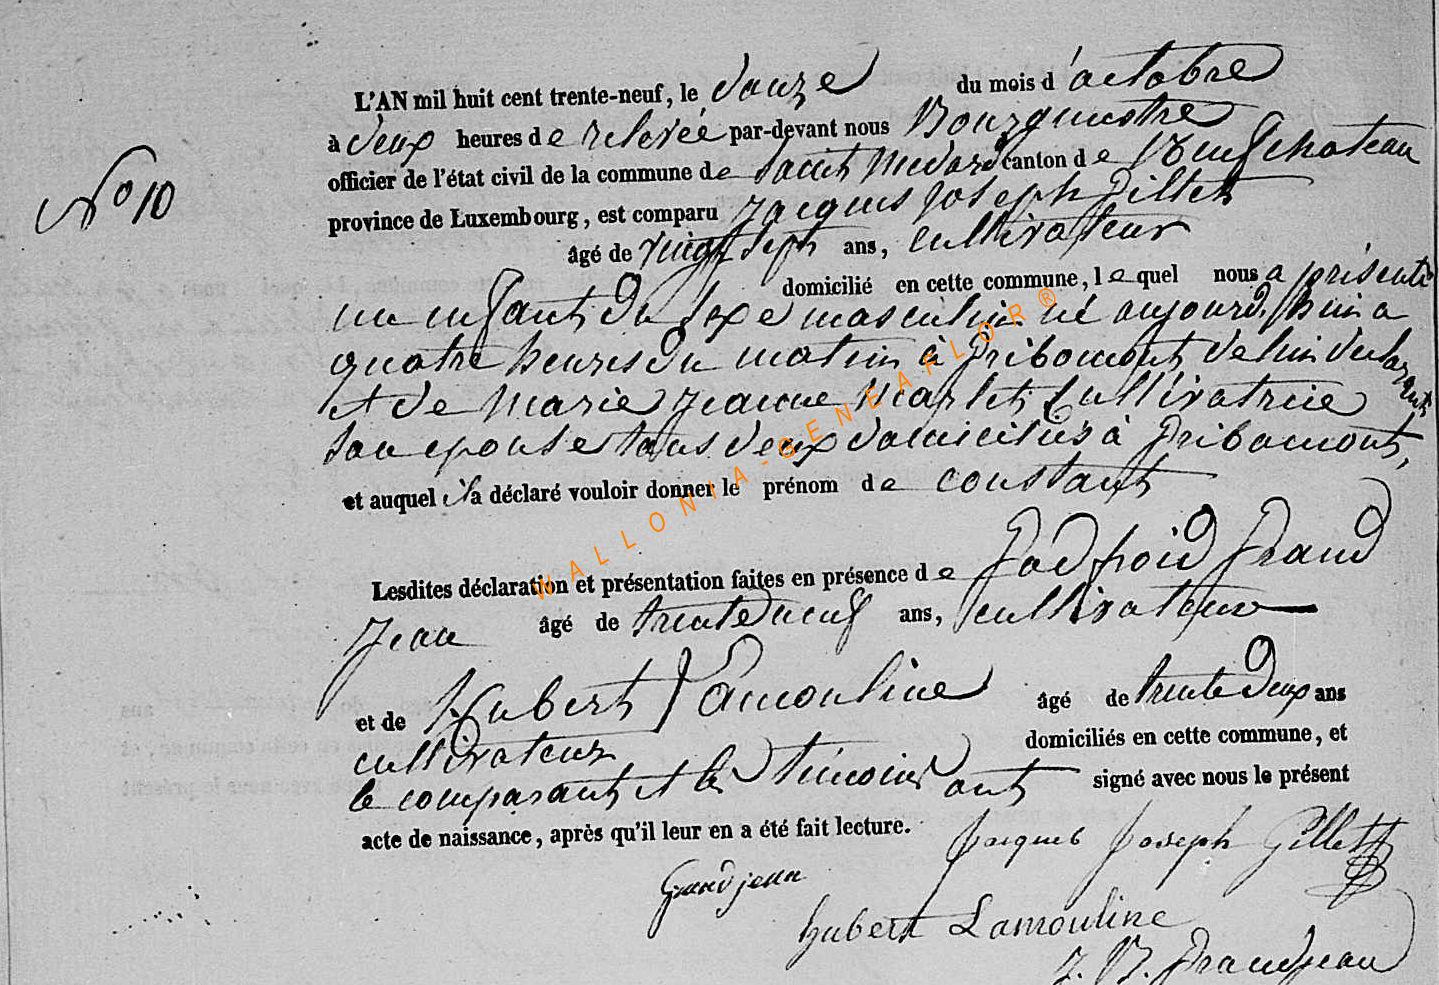 L'AN mil huit cent trente-neuf, le douze du mois d'octobre
à deux heures de relevée par-devant nous Bourgmestre
officier de l'état civil de la commune de Saint Medard canton de Neufchateau
province de Luxembourg, est comparu Jacques Joseph Gillet
âgé de vingt sept ans, cultivateur
domicilié en cette commune, lequel nous a présenté
un enfant du sexe masculin né aujourd'hui a
quatre heures du matin à Gribomont, de lui declarant
et de Marie Jeanne Marlet, cultivatrice
son epouse tous deux domiciliés à Gribomont,
et auquel il a déclaré vouloir donner le prénom de constant
Lesdites déclaration et présentation faites en présence de Godfroid Grand
Jean âgé de trente neuf ans, cultivateur
et de Hubert Lamouline âgé de trente deux ans
cultivateur domiciliés en cette commune, et
le comparant et les témoins ont signé avec nous le présent
acte de naissance, après qu'il leur en a été fait lecture.
Jacques Joseph Gillet
Grandjean
hubert Lamouline
J. B. Grandjean
No 10
WALLONIA-GENEAFLOR®